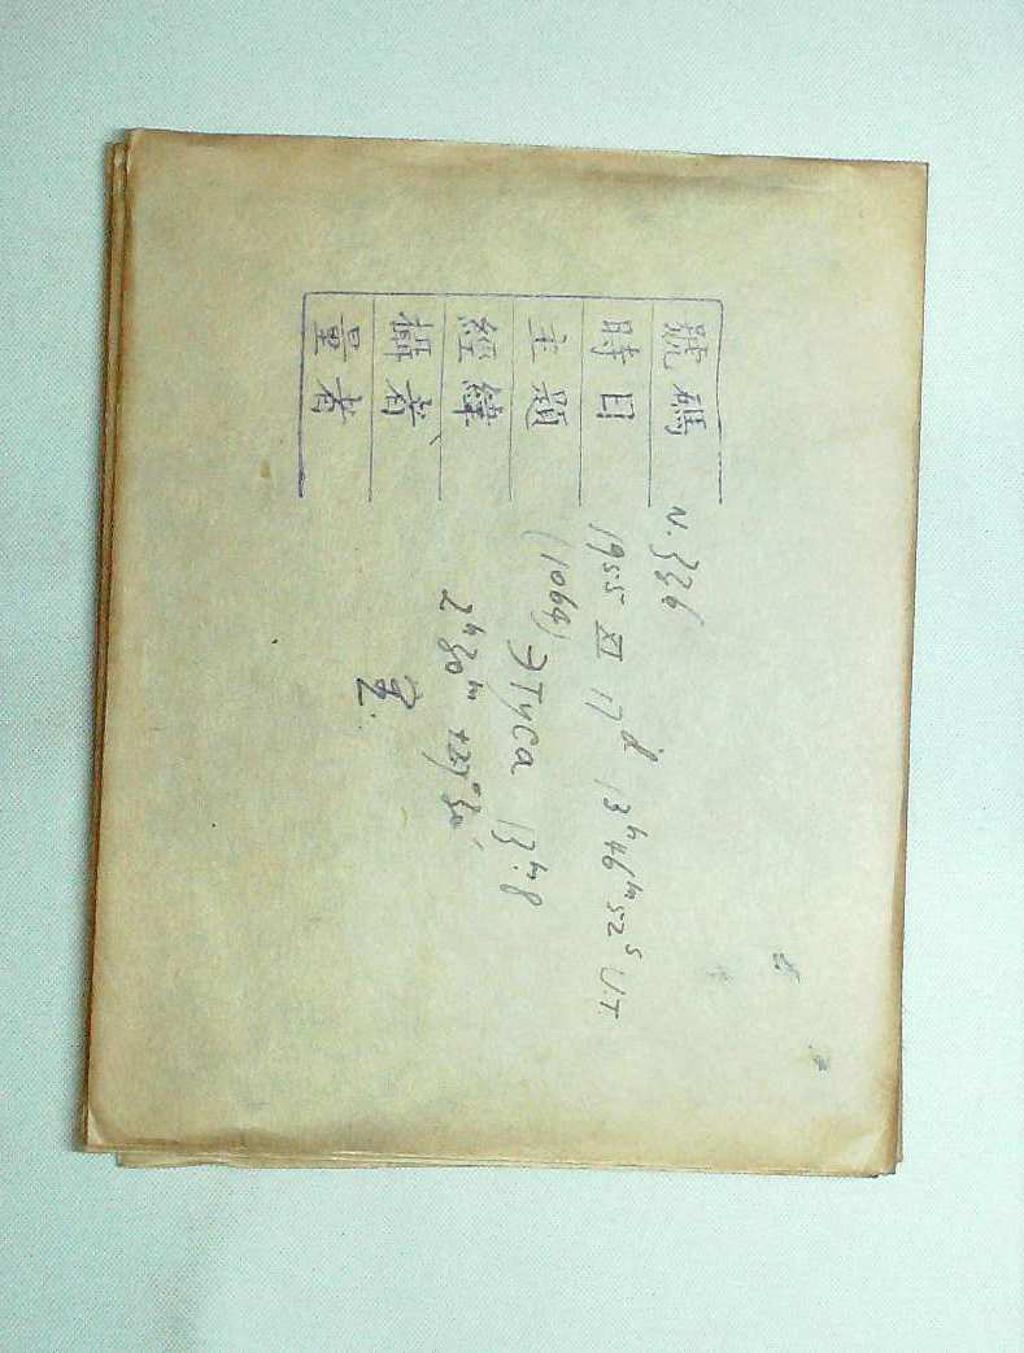 號碼 N. 3326
時日 1955 XI 17ᵈ 13ʰ46ᵐ52ˢ U.T.
主題 (1069) Этуса 13ᵐ.8
經緯 2ʰ30ᵐ +27°30′
攝者
量者